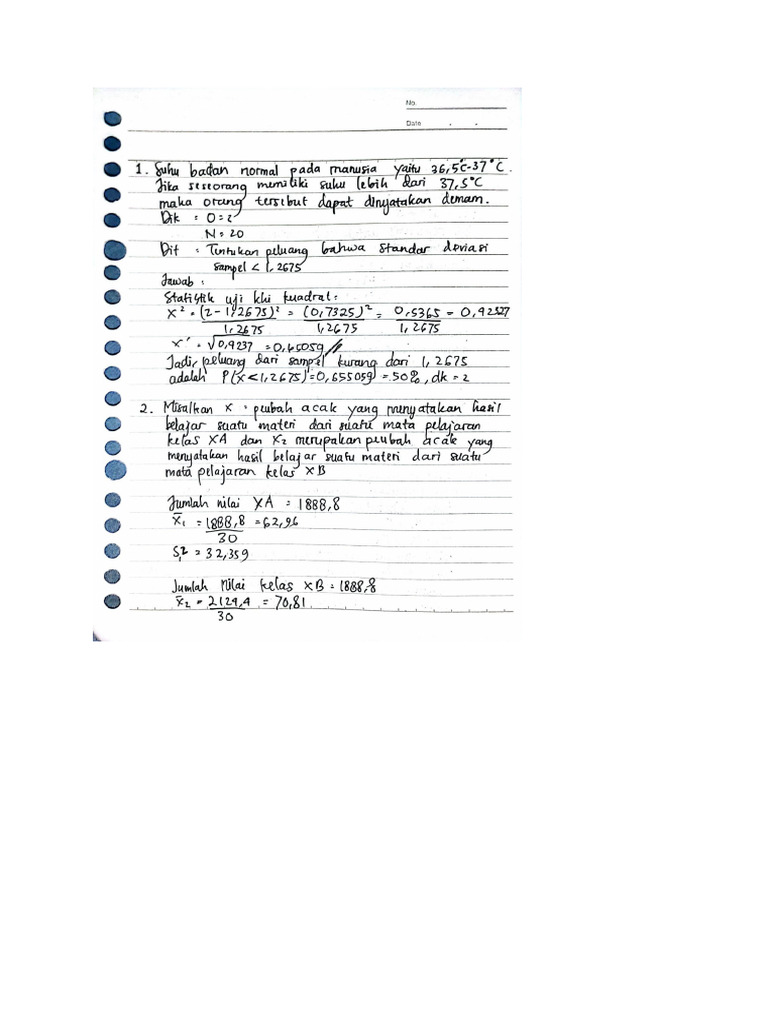 No.
Date
1. Suhu badan normal pada manusia yaitu 36,5°C-37°C.
Jika seseorang memiliki suhu lebih dari 37,5°C
maka orang tersebut dapat dinyatakan demam.
Dik : O = 2
N = 20
Dit : Tentukan peluang bahwa standar deviasi
sampel < 1,2675
Jawab :
Statistik uji khi kuadrat :
X² = (2 - 1,2675)² = (0,7325)² = 0,5365 = 0,92327
1,2675 1,2675 1,2675
X' = √0,9237 = 0,65059 //
Jadi, peluang dari sampel kurang dari 1,2675
adalah P(X < 1,2675) = 0,655059) = 50%, dk = 2
2. Misalkan X : peubah acak yang menyatakan hasil
belajar suatu materi dari suatu mata pelajaran
kelas XA dan X₂ merupakan peubah acak yang
menyatakan hasil belajar suatu materi dari suatu
mata pelajaran kelas XB
Jumlah nilai XA = 1888,8
X̄₁ = 1888,8 = 62,96
30
S₁² = 32,359
Jumlah Nilai kelas XB = 1888,8
X̄₂ = 2124,4 = 70,81
30